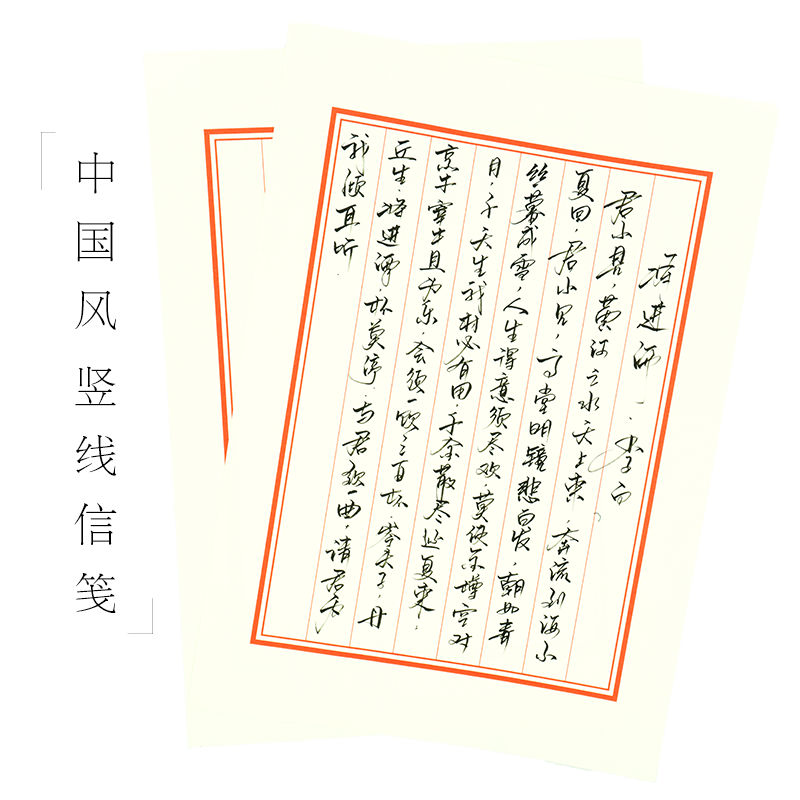 「中国风竖线信笺」
将进酒 、李白
君不见，黄河之水天上来，奔流到海不
复回，君不见，高堂明镜悲白发，朝如青
丝暮成雪，人生得意须尽欢，莫使金樽空对
月，天生我材必有用，千金散尽还复来，
烹牛宰羊且为乐，会须一饮三百杯，岑夫子，丹
丘生，将进酒，杯莫停，与君歌一曲，请君为
我倾耳听．